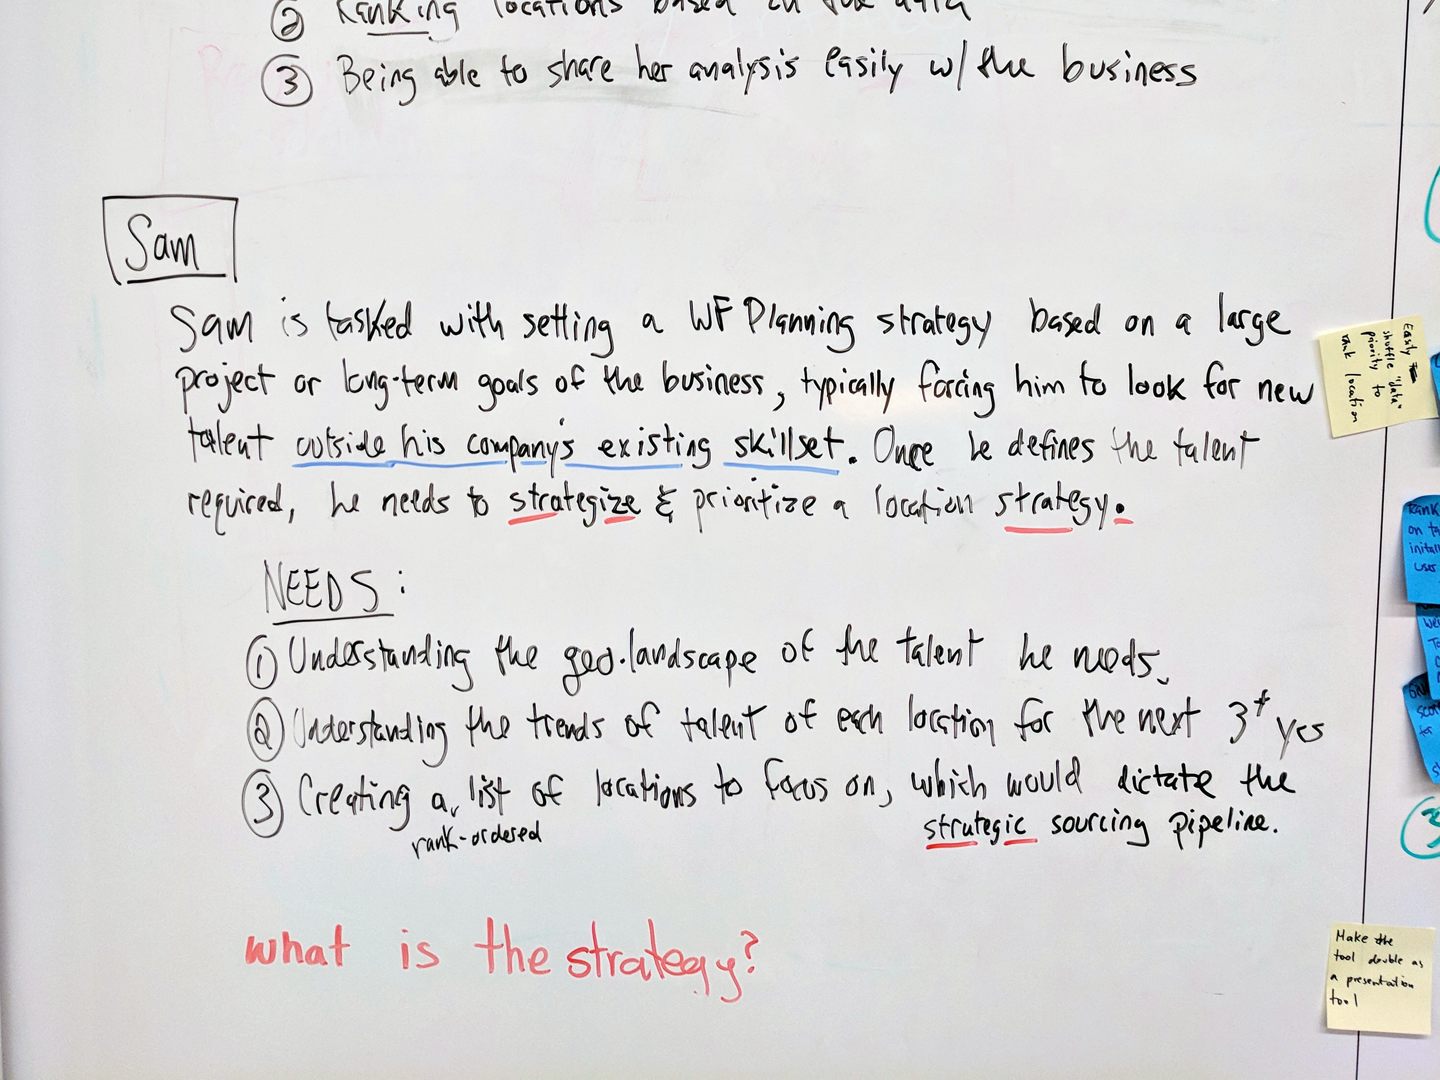 ② Ranking locations based on the data
③ Being able to share her analysis easily w/ the business
Sam
Sam is tasked with setting a WF Planning strategy based on a large
project or long-term goals of the business, typically forcing him to look for new
talent outside his company's existing skillset. Once he defines the talent
required, he needs to strategize & prioritize a location strategy.
NEEDS:
① Understanding the geo.landscape of the talent he needs.
② Understanding the trends of talent of each location for the next 3+ yrs
③ Creating a list of locations to focus on, which would dictate the
rank-ordered
strategic sourcing pipeline.
what is the strategy?
Easily
shuffle "data"
priority to
rank location
Rank
on
user
Make the
tool double as
a presentation
tool
3